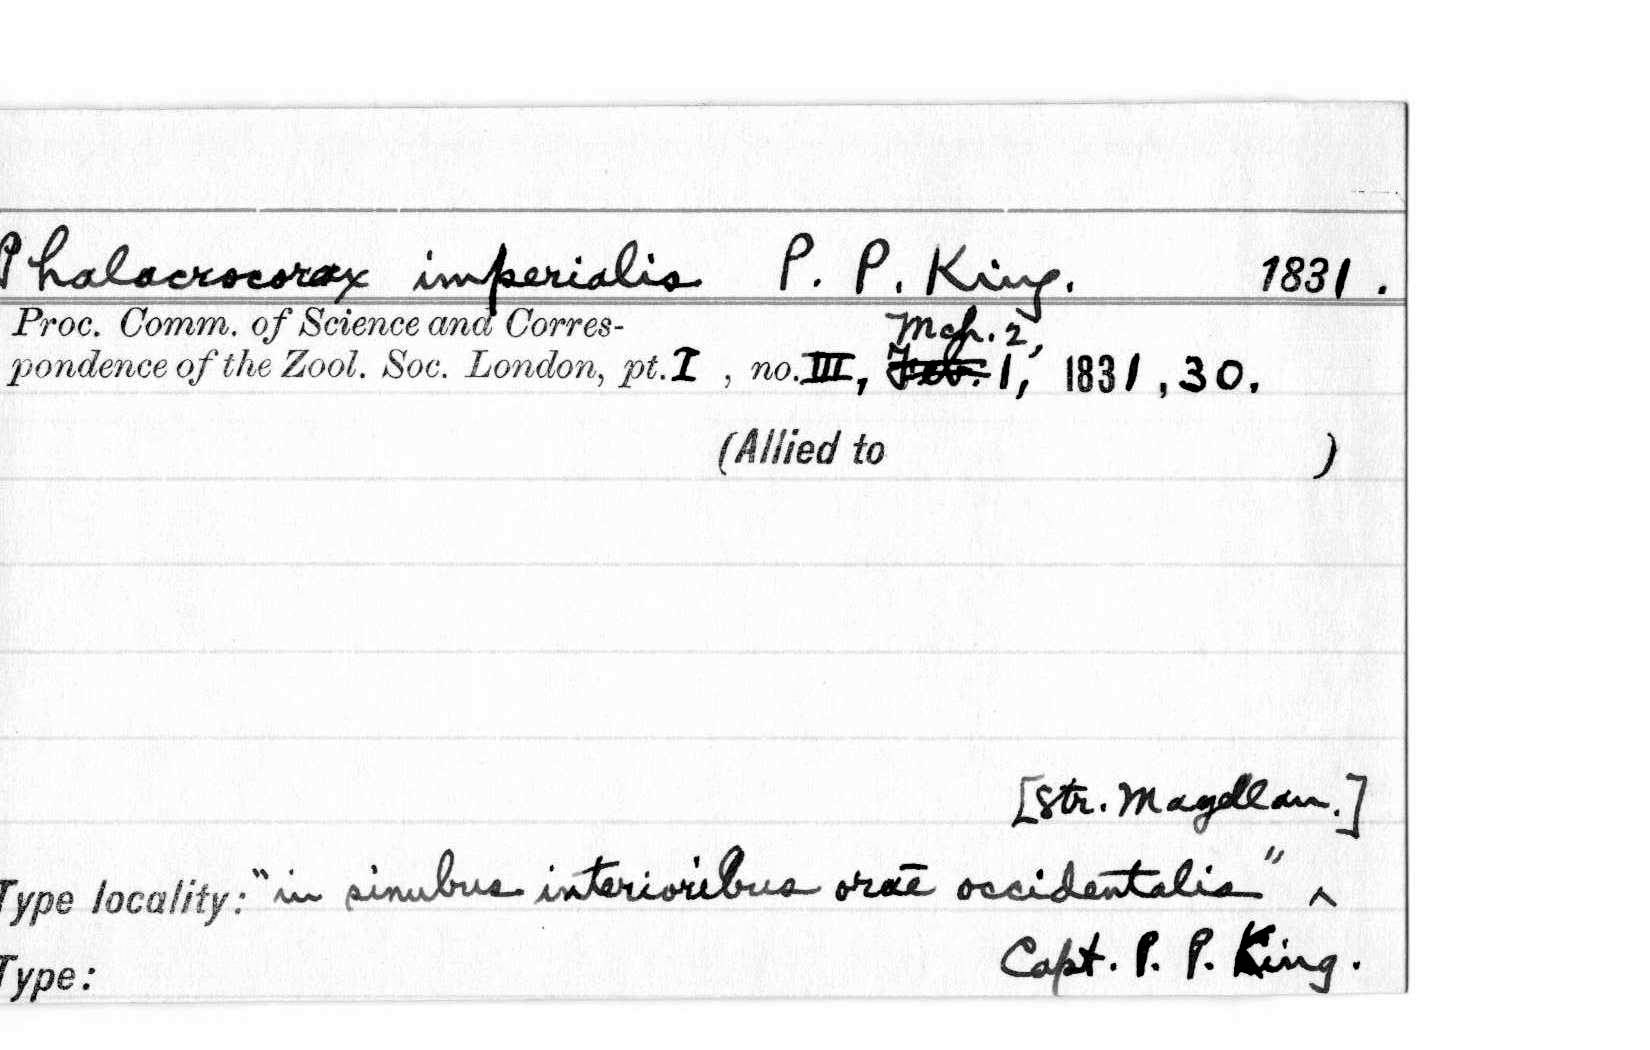 Phalacrocorax imperialis P. P. King. 1831.
Proc. Comm. of Science and Corres-
Mch. 2,
pondence of the Zool. Soc. London, pt. I, no. III, Feb. 1, 1831, 30.
(Allied to )
[Str. Magellan.]
Type locality: "in sinubus interioribus orae occidentalis" ^
Capt. P. P. King.
Type: